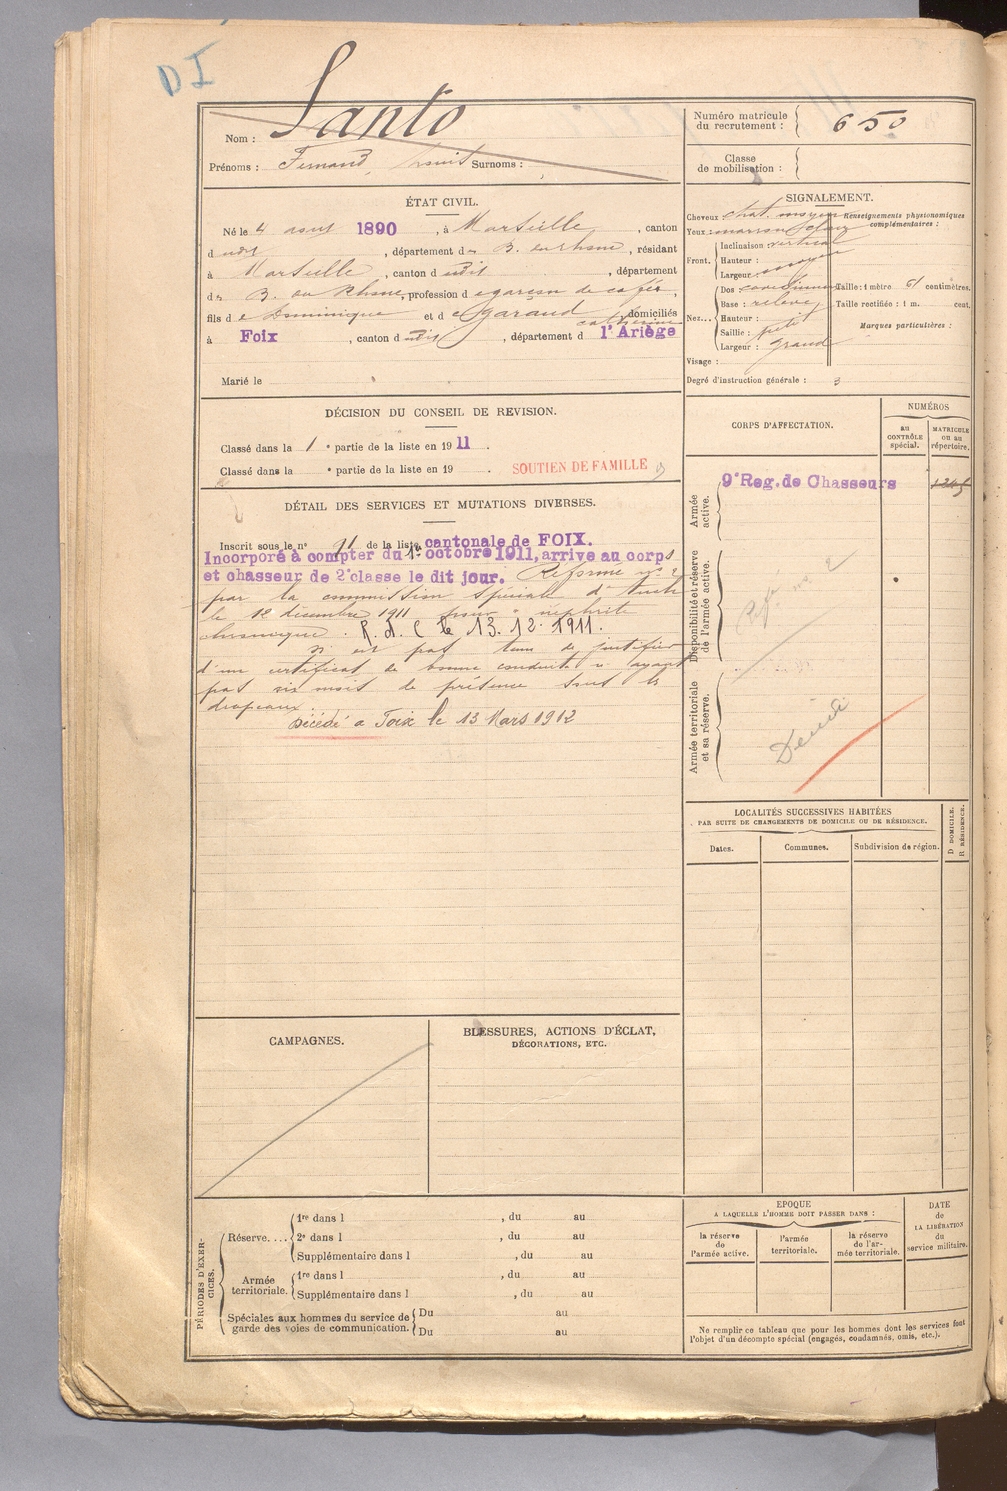 DI
Nom : Santo
Prénoms : Fernand, Louis Surnoms :
Numéro matricule du recrutement : 650
Classe de mobilisation :
ÉTAT CIVIL.
Né le 4 1890, à Marseille, canton
dudit, département des B. du Rhône, résidant
à Marseille, canton dudit, département
des B. du Rhône, profession de garçon de café,
fils de Dominique et de Garaud Catherine, domiciliés
à Foix, canton dudit, département d l'Ariège
Marié le
SIGNALEMENT.
Cheveux chat. moyen
Yeux : marron clair
Front. Inclinaison : vertical
Hauteur :
Largeur : moyen
Nez... Dos :
Base : relevé
Hauteur :
Saillie : petit
Largeur : grand
Visage :
Renseignements physionomiques complémentaires :
Taille : 1 mètre 61 centimètres.
Taille rectifiée : 1 m. cent.
Marques particulières :
Degré d'instruction générale : 3
DÉCISION DU CONSEIL DE REVISION.
Classé dans la 1e partie de la liste en 1911.
Classé dans la e partie de la liste en 19 .
SOUTIEN DE FAMILLE
DÉTAIL DES SERVICES ET MUTATIONS DIVERSES.
Inscrit sous le n° 71 de la liste cantonale de FOIX.
Incorporé à compter du 1er octobre 1911, arrive au corps
et chasseur de 2e classe le dit jour. Réformé n° 2
par la commission spéciale d'Auch
le 12 décembre 1911 pour : néphrite
chronique. R.d.C le 13.12.1911.
N'est pas tenu de justifier
d'un certificat de bonne conduite n'ayant
pas six mois de présence sous les
drapeaux.
Décédé à Foix le 13 Mars 1912
CORPS D'AFFECTATION.
NUMÉROS
au CONTRÔLE spécial.
MATRICULE ou au répertoire.
Armée active.
9e Reg. de Chasseurs
Disponibilité et réserve de l'armée active.
Réf. no 2
Armée territoriale et sa réserve.
Décédé
LOCALITÉS SUCCESSIVES HABITÉES
PAR SUITE DE CHANGEMENTS DE DOMICILE OU DE RÉSIDENCE.
Dates.
Communes.
Subdivision de région.
D DOMICILE.
R RÉSIDENCE.
CAMPAGNES.
BLESSURES, ACTIONS D'ÉCLAT,
DÉCORATIONS, ETC.
PÉRIODES D'EXERCICES.
Réserve.... 1re dans l , du au
2e dans l , du au
Supplémentaire dans l , du au
Armée territoriale. 1re dans l , du au
Supplémentaire dans l , du au
Spéciales aux hommes du service de garde des voies de communication. Du au
Du au
EPOQUE
A LAQUELLE L'HOMME DOIT PASSER DANS :
la réserve de l'armée active.
l'armée territoriale.
la réserve de l'armée territoriale.
DATE de LA LIBÉRATION du service militaire.
Ne remplir ce tableau que pour les hommes dont les services font
l'objet d'un décompte spécial (engagés, condamnés, omis, etc.).